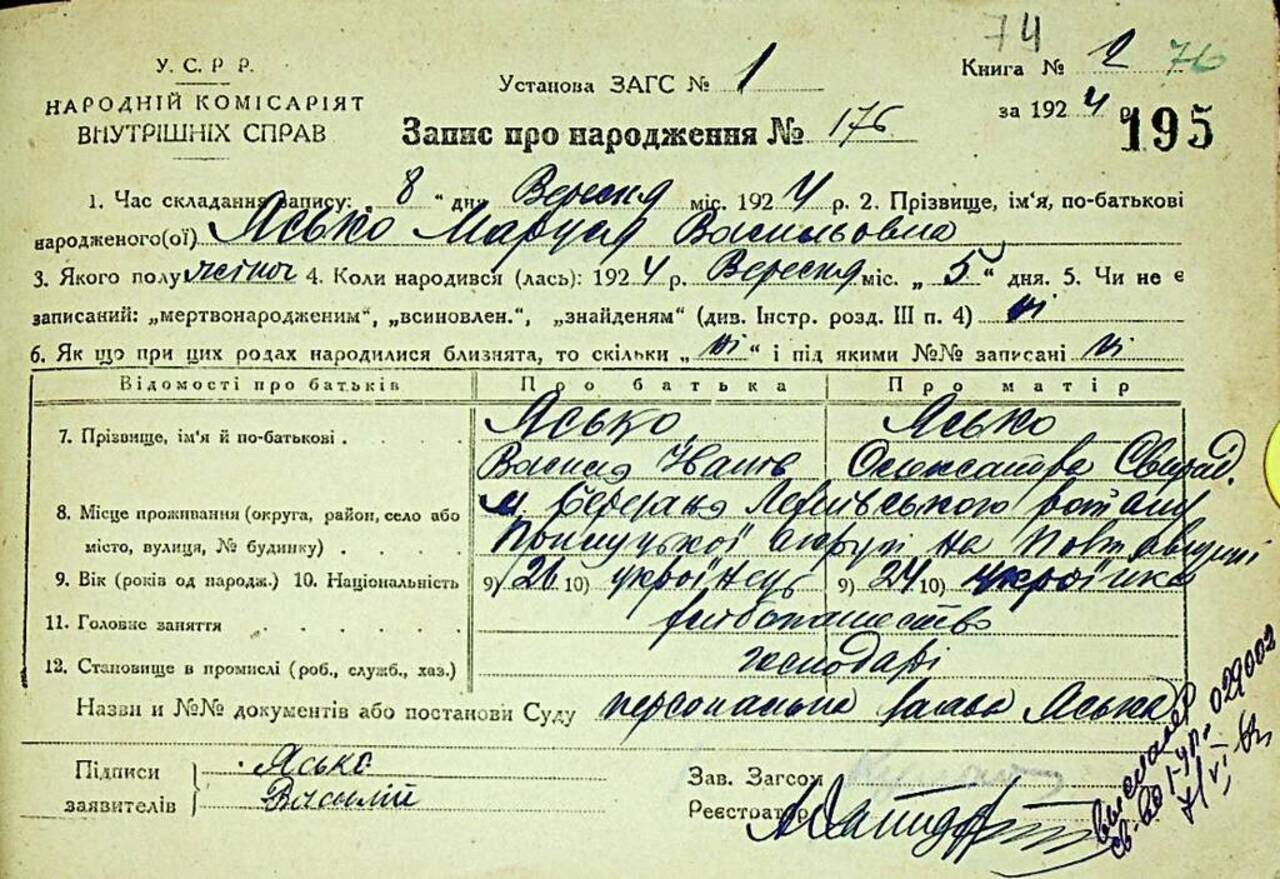 74
У. С. Р Р.
НАРОДНІЙ КОМІСАРІЯТ
ВНУТРІШНІХ СПРАВ
Установа ЗАГС № 1
Книга № 2 76
за 1924 р.
195
Запис про народження № 176
1. Час складання запису: „ 8 “ дня Вересня міс. 1924 р. 2. Прізвище, ім'я, по-батькові
народженого(ої) Ясько Маруся Васильовна
3. Якого полу жіноч 4. Коли народився (лась): 1924 р. Вересня міс. „ 5 “ дня. 5. Чи не є
записаний: „мертвонародженим“, „всиновлен.“, „знайденям“ (див. Інстр. розд. III п. 4) ні
6. Як що при цих родах народилися близнята, то скільки „ ні “ і під якими №№ записані ні
Відомості про батьків Про батька Про матір
7. Прізвище, ім'я й по-батькові Ясько Ясько
Василь Іванів Олександра Свирид.
8. Місце проживання (округа, район, село або м. Березань
місто, вулиця, № будинку) Прилуцької округи на Полтавщині
9. Вік (років од народж.) 10. Національність 9) 26 10) українець 9) 24 10) українка
11. Головне заняття хлібопашество
12. Становище в промислі (роб., служб., хаз.) господарі
Назви и №№ документів або постанови Суду персональна заява Яська
Підписи
заявителів
Ясько
Василій
Зав. Загсом
Реєстратор
029002